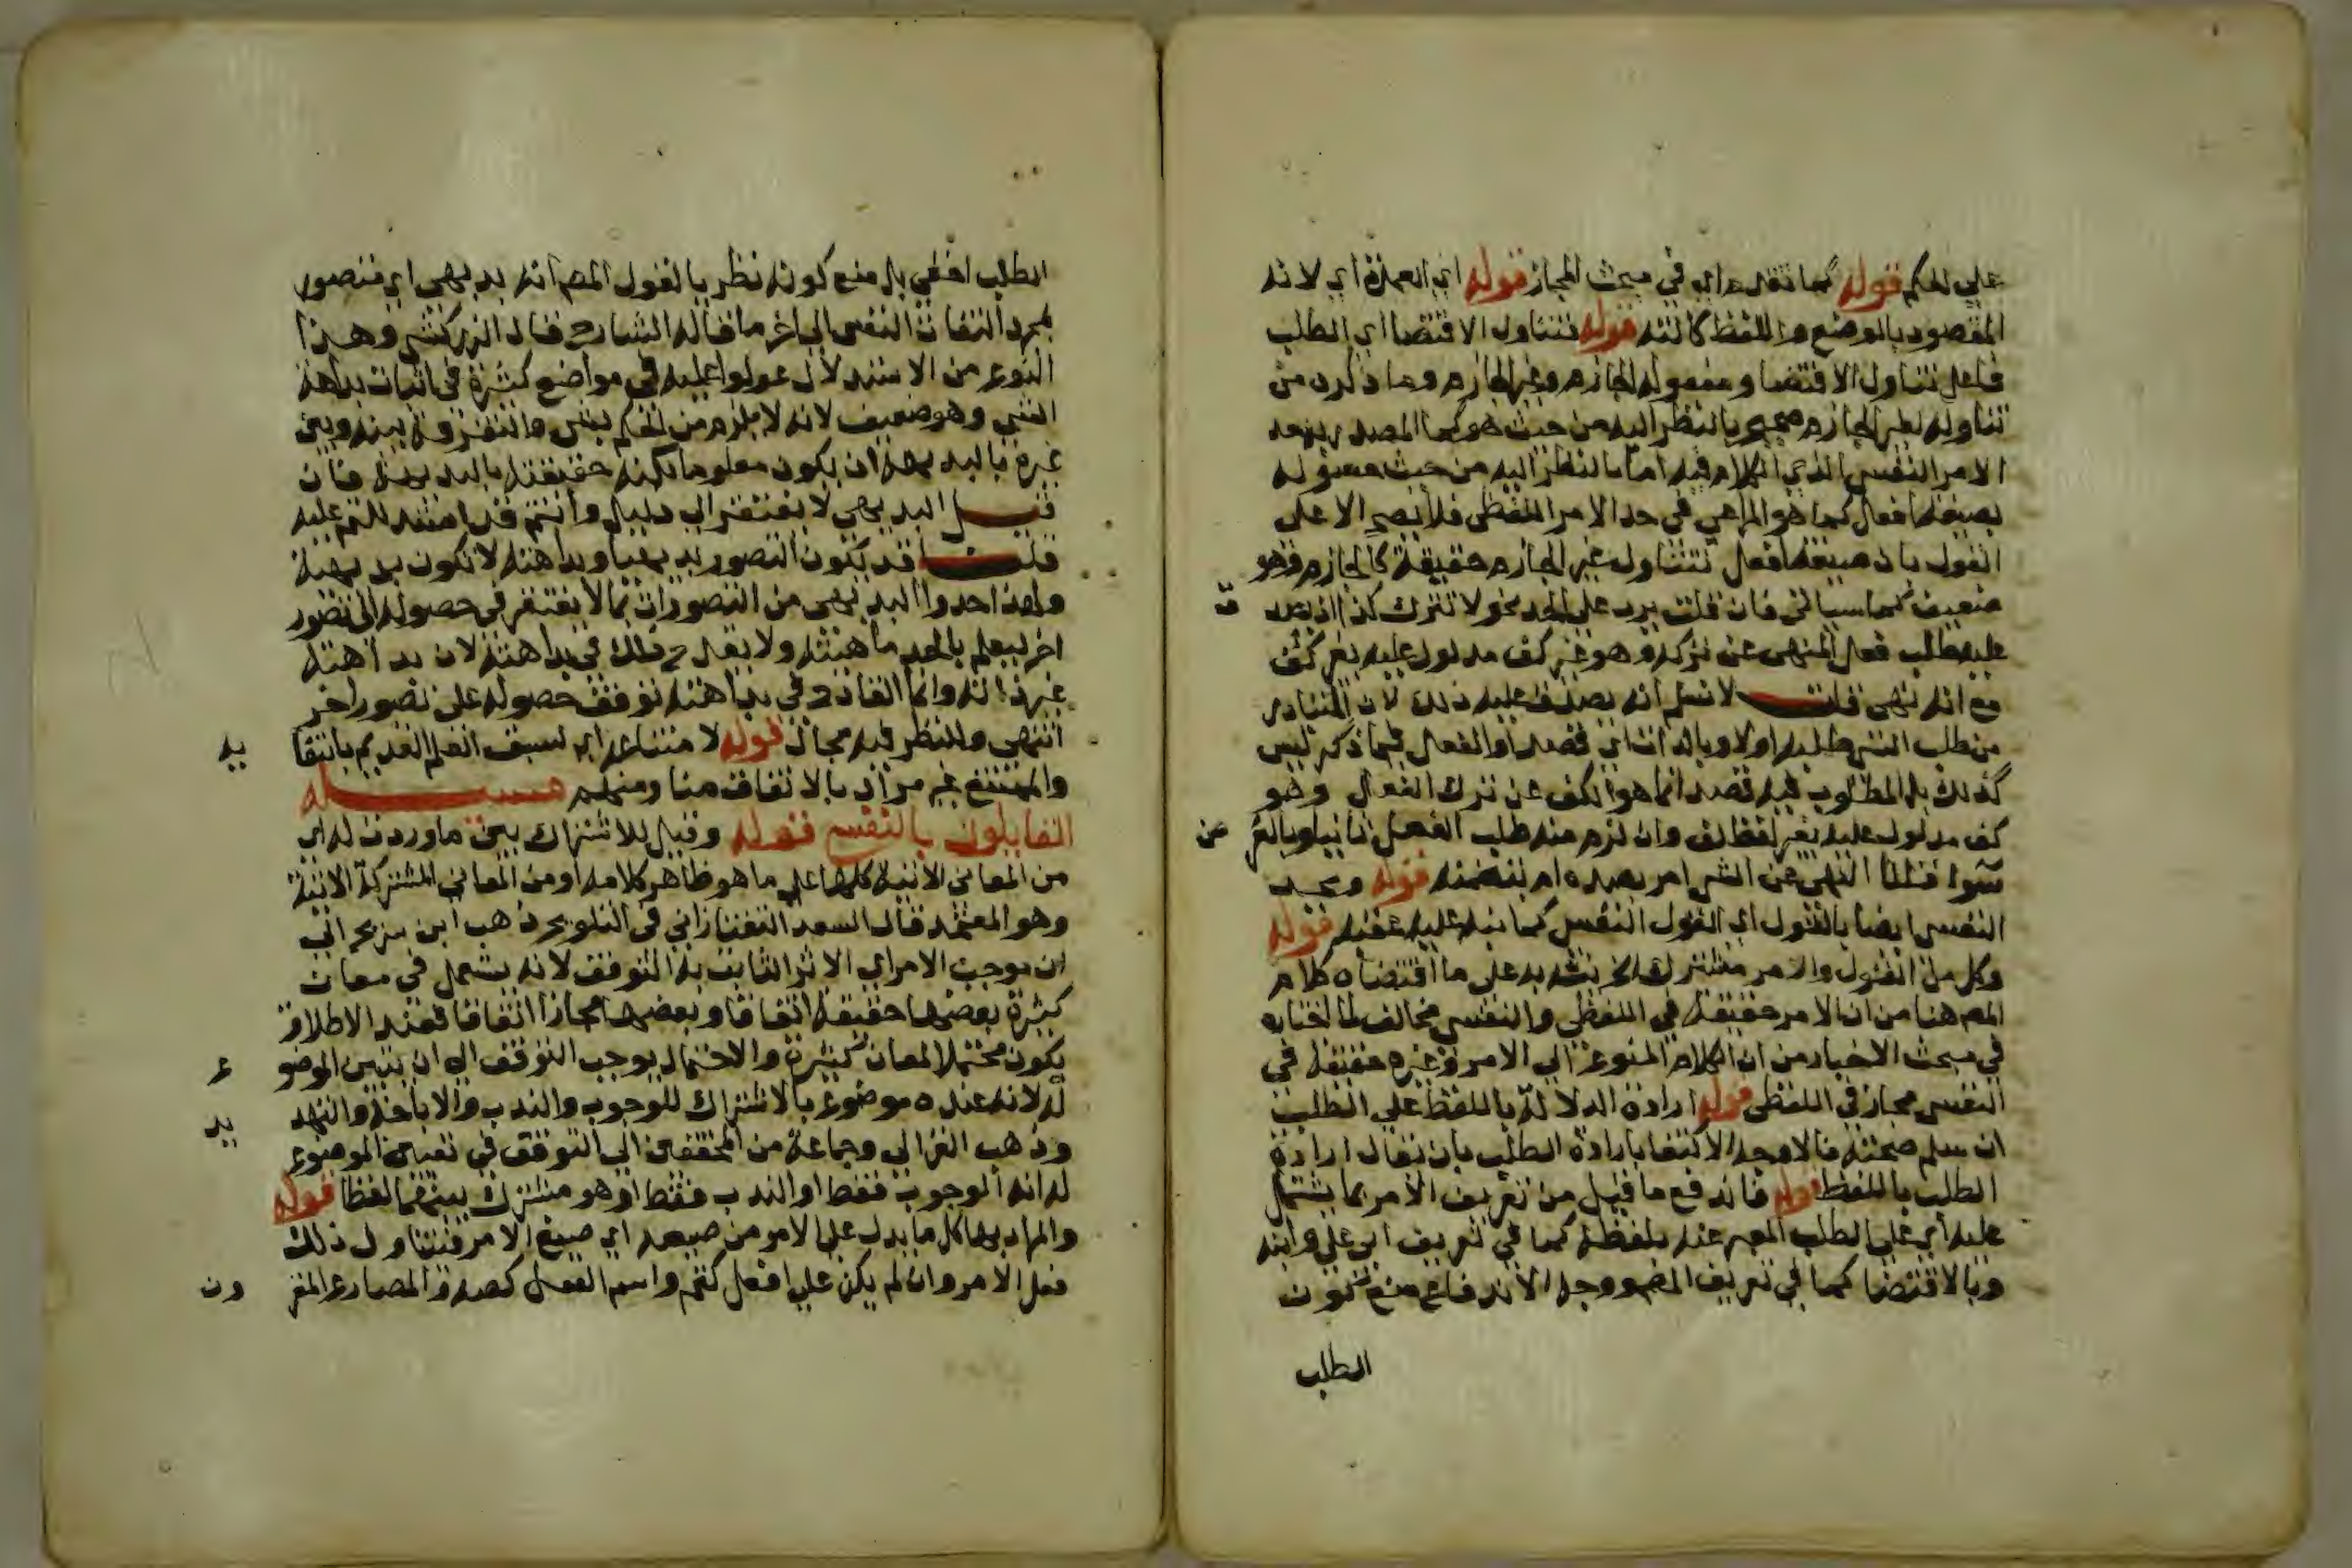 على الحكم قوله كما تقدم اي في مبحث المجاز قوله اي العمدة اي لانه
المقصود بالوضع واللفظ كالته قوله فتناول الاقتضا اي الطلب
فاعل تناول الاقتضا ومفعوله الجازم وغير الجازم وما ذكره من
تناوله لغير الجازم صحيح بالنظر اليه من حيث هو كما المصدر بحد
الامر النفسي الذي الكلام فيه اما بالنظر اليه من حيث مسوله
بصيغة افعل كما هو المراعي في حد الامر اللفظي فلا يصح الا على
القول بان صيغة افعل تتناول غير الجازم حقيقة كالجازم وهو
ضعيف كما سياتي فان قلت يرد على الحد نحو لا تترك كذا اذ يصد ق
عليه طلب فعل المنهى عن تركه وهو غير كف مدلول عليه بغير كف
مع انه نهى قلت لا نسلم انه يصدق عليه ذلك لان المتبادر
من طلب الشي طلبه اولا وبالذات اي قصدا والفعل فيما ذكر ليس
كذلك بل المطلوب فيه قصدا انما هو الكف عن ترك الفعل وهو
كف مدلول عليه بغير لفظ كف وان لزم منه طلب الفعل ثانيا وبالعر ض
سوا قلنا النهي عن الشي امر بضده ام يتضمنه قوله ويحد
النفسي ايضا بالقول اي القول النفسي كما نبه عليه عقبه قوله
وكل من القول والامر مشترك الخ نبه به على ما اقتضاه كلام
المص هنا من ان الامر حقيقة في اللفظي والنفسي مخالف لما اختاره
في مبحث الاخبار من ان الكلام المنوع الى الامر وغيره حقيقة في
النفسي مجاز في اللفظي قوله ارادة الدلالة باللفظ على الطلب
ان سلم صحته فالاوجه الاكتفا بارادة الطلب بان يقال ارادة
الطلب باللفظ قوله فاندفع ما قيل من تعريف الامر بما يشتمل
عليه اي على الطلب المعبر عنه بلفظه كما في تعريف ابي علي وابنه
وبالاقتضا كما في تعريف المص ووجه الاندفاع منع كون
الطلب
الطلب اخفى بل منع كونه نظريا لقول المص انه بديهي اي متصور
بمجرد التفات النفس الى اخر ما قاله الشارح قال الزركشي وهذا
النوع من الاستدلال عولوا عليه في مواضع كثيرة في اثبات بداهة
الشي وهو ضعيف لانه لا يلزم من الحكم بشي والتفرقة بينه وبين
غيره بالبديهة ان يكون معلوما بكنه حقيقته بالبديهة فان
قيل البديهي لا يفتقر الى دليل وانتم قد استدللتم عليه
قلنا قد يكون التصور بديهيا وبداهته لا تكون بديهية
ولهذا حدوا البديهي من التصورات بما لا يفتقر في حصوله الى تصور
اخر ليعلم بالحد ماهيته ولا يقدح ذلك في بداهته لان بداهته
غير ذاته وانما القادح في بداهته توقف حصوله على تصور اخر
انتهى وللنظر فيه مجال قوله لامتناعه اي لسبق العلم القديم بانتفا يه
والممتنع غير مراد بالاتفاق منا ومنهم مسئلة
القايلون بالنفسي قوله وقيل للاشتراك بين ما وردت له اي
من المعاني الاتية كلها على ما هو ظاهر كلامه او من المعاني المشتركة الاتية
وهو المعتمد قال السعد التفتازاني في التلويح ذهب ابن سريج الى
ان موجب الامر اي الاثر الثابت به التوقف لانه يستعمل في معان
كثيرة بعضها حقيقة اتفاقا وبعضها مجازا اتفاقا فعند الاطلاق
يكون محتملا لمعان كثيرة والاحتمال يوجب التوقف الى ان يتبين الموضو ع
له لانه عنده موضوع بالاشتراك للوجوب والندب والاباحة والتهد يد
وذهب الغزالي وجماعة من المحققين الى التوقف في تعيين الموضوع
له انه الوجوب فقط او الندب فقط او هو مشترك بينهما لفظا قوله
والمراد بها كل ما يدل على الامر من صيغه اي صيغ الامر فيتناول ذلك
فعل الامر وان لم يكن على افعل كقم واسم الفعل كصه والمضارع المقر ون